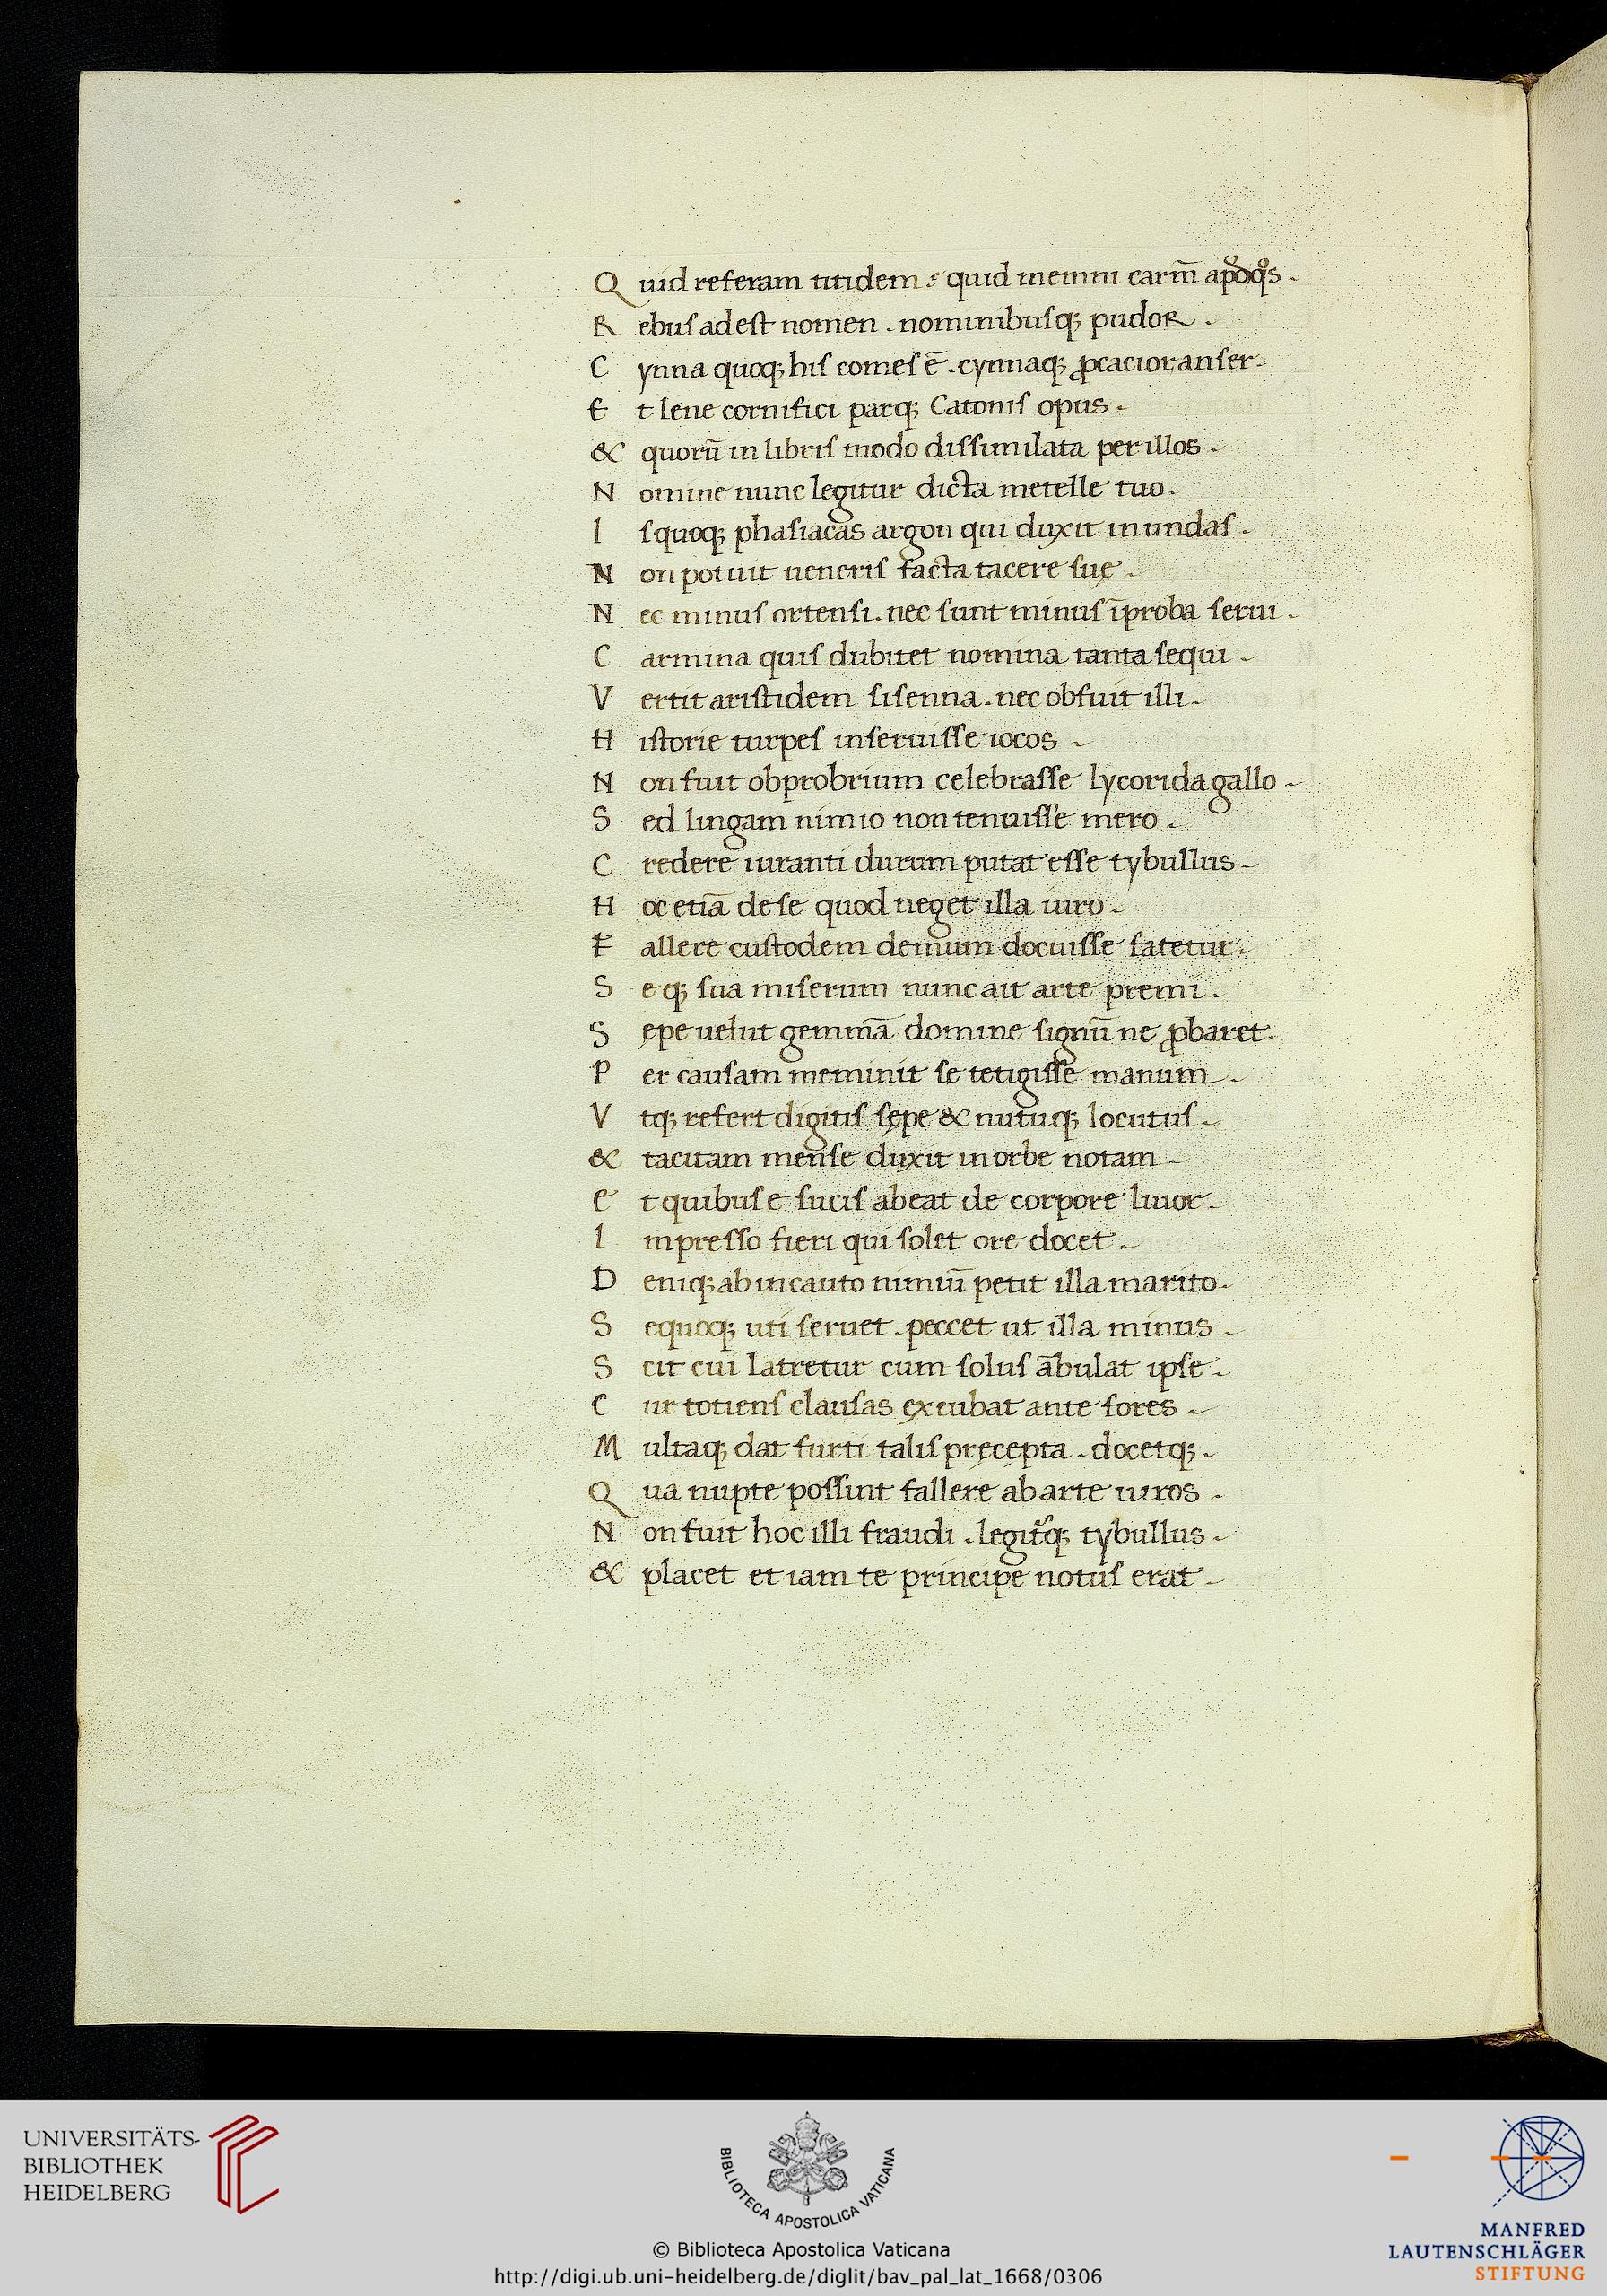 Quid referam titidem? quid memni carm̄ apd̊q̊s.
Rebus adest nomen. nominibusq; pudor.
Cynna quoq; his comes ē. cynnaq; ꝓcacior, anser.
Et lene cornifici parq; Catonis opus.
& quorū in libris modo dissimilata per illos.
Nomine nunc legitur dicta metelle tuo.
Is quoq; phasiacas argon qui duxit in undas.
Non potuit ueneris facta tacere suę.
Nec minus ortensi. nec sunt minus īproba serui.
Carmina quis dubitet nomina tanta sequi.
Vertit aristidem sisenna. nec obfuit illi.
Historie turpes inseruisse iocos.
Non fuit obprobrium celebrasse lycorida gallo.
Sed lingam nimio non tenuisse mero.
Credere iuranti durum putat esse tybullus.
Hoc etiā de se quod neget illa uiro.
Fallere custodem demum docuisse fatetur.
Seq; sua miserum nunc ait arte premi.
Sępe uelut gemmā domine signū ne ꝓbaret.
Per causam meminit se tetigisse manum.
Vtq; refert digitis sępe & nutuq; locutus.
& tacitam mense duxit in orbe notam.
Et quibus e sucis abeat de corpore liuor.
Impresso fieri qui solet ore docet.
Deniq; ab incauto nimiū petit illa marito.
Se quoq; uti seruet. peccet ut illa minus.
Scit cui latretur cum solus ābulat ipse.
Cur totiens clausas excubat ante fores.
Multaq; dat furti talis pręcepta. docetq;.
Qua nupte possint fallere ab arte uiros.
Non fuit hoc illi fraudi. legit᷑q; tybullus.
& placet et iam te principe notus erat.
UNIVERSITÄTS-
BIBLIOTHEK
HEIDELBERG
BIBLIOTECA APOSTOLICA VATICANA
© Biblioteca Apostolica Vaticana
http://digi.ub.uni-heidelberg.de/diglit/bav_pal_lat_1668/0306
MANFRED
LAUTENSCHLÄGER
STIFTUNG